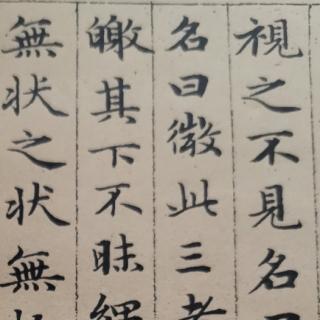 視之不見名
名曰微此三者
皦其下不昧繩
無状之状無